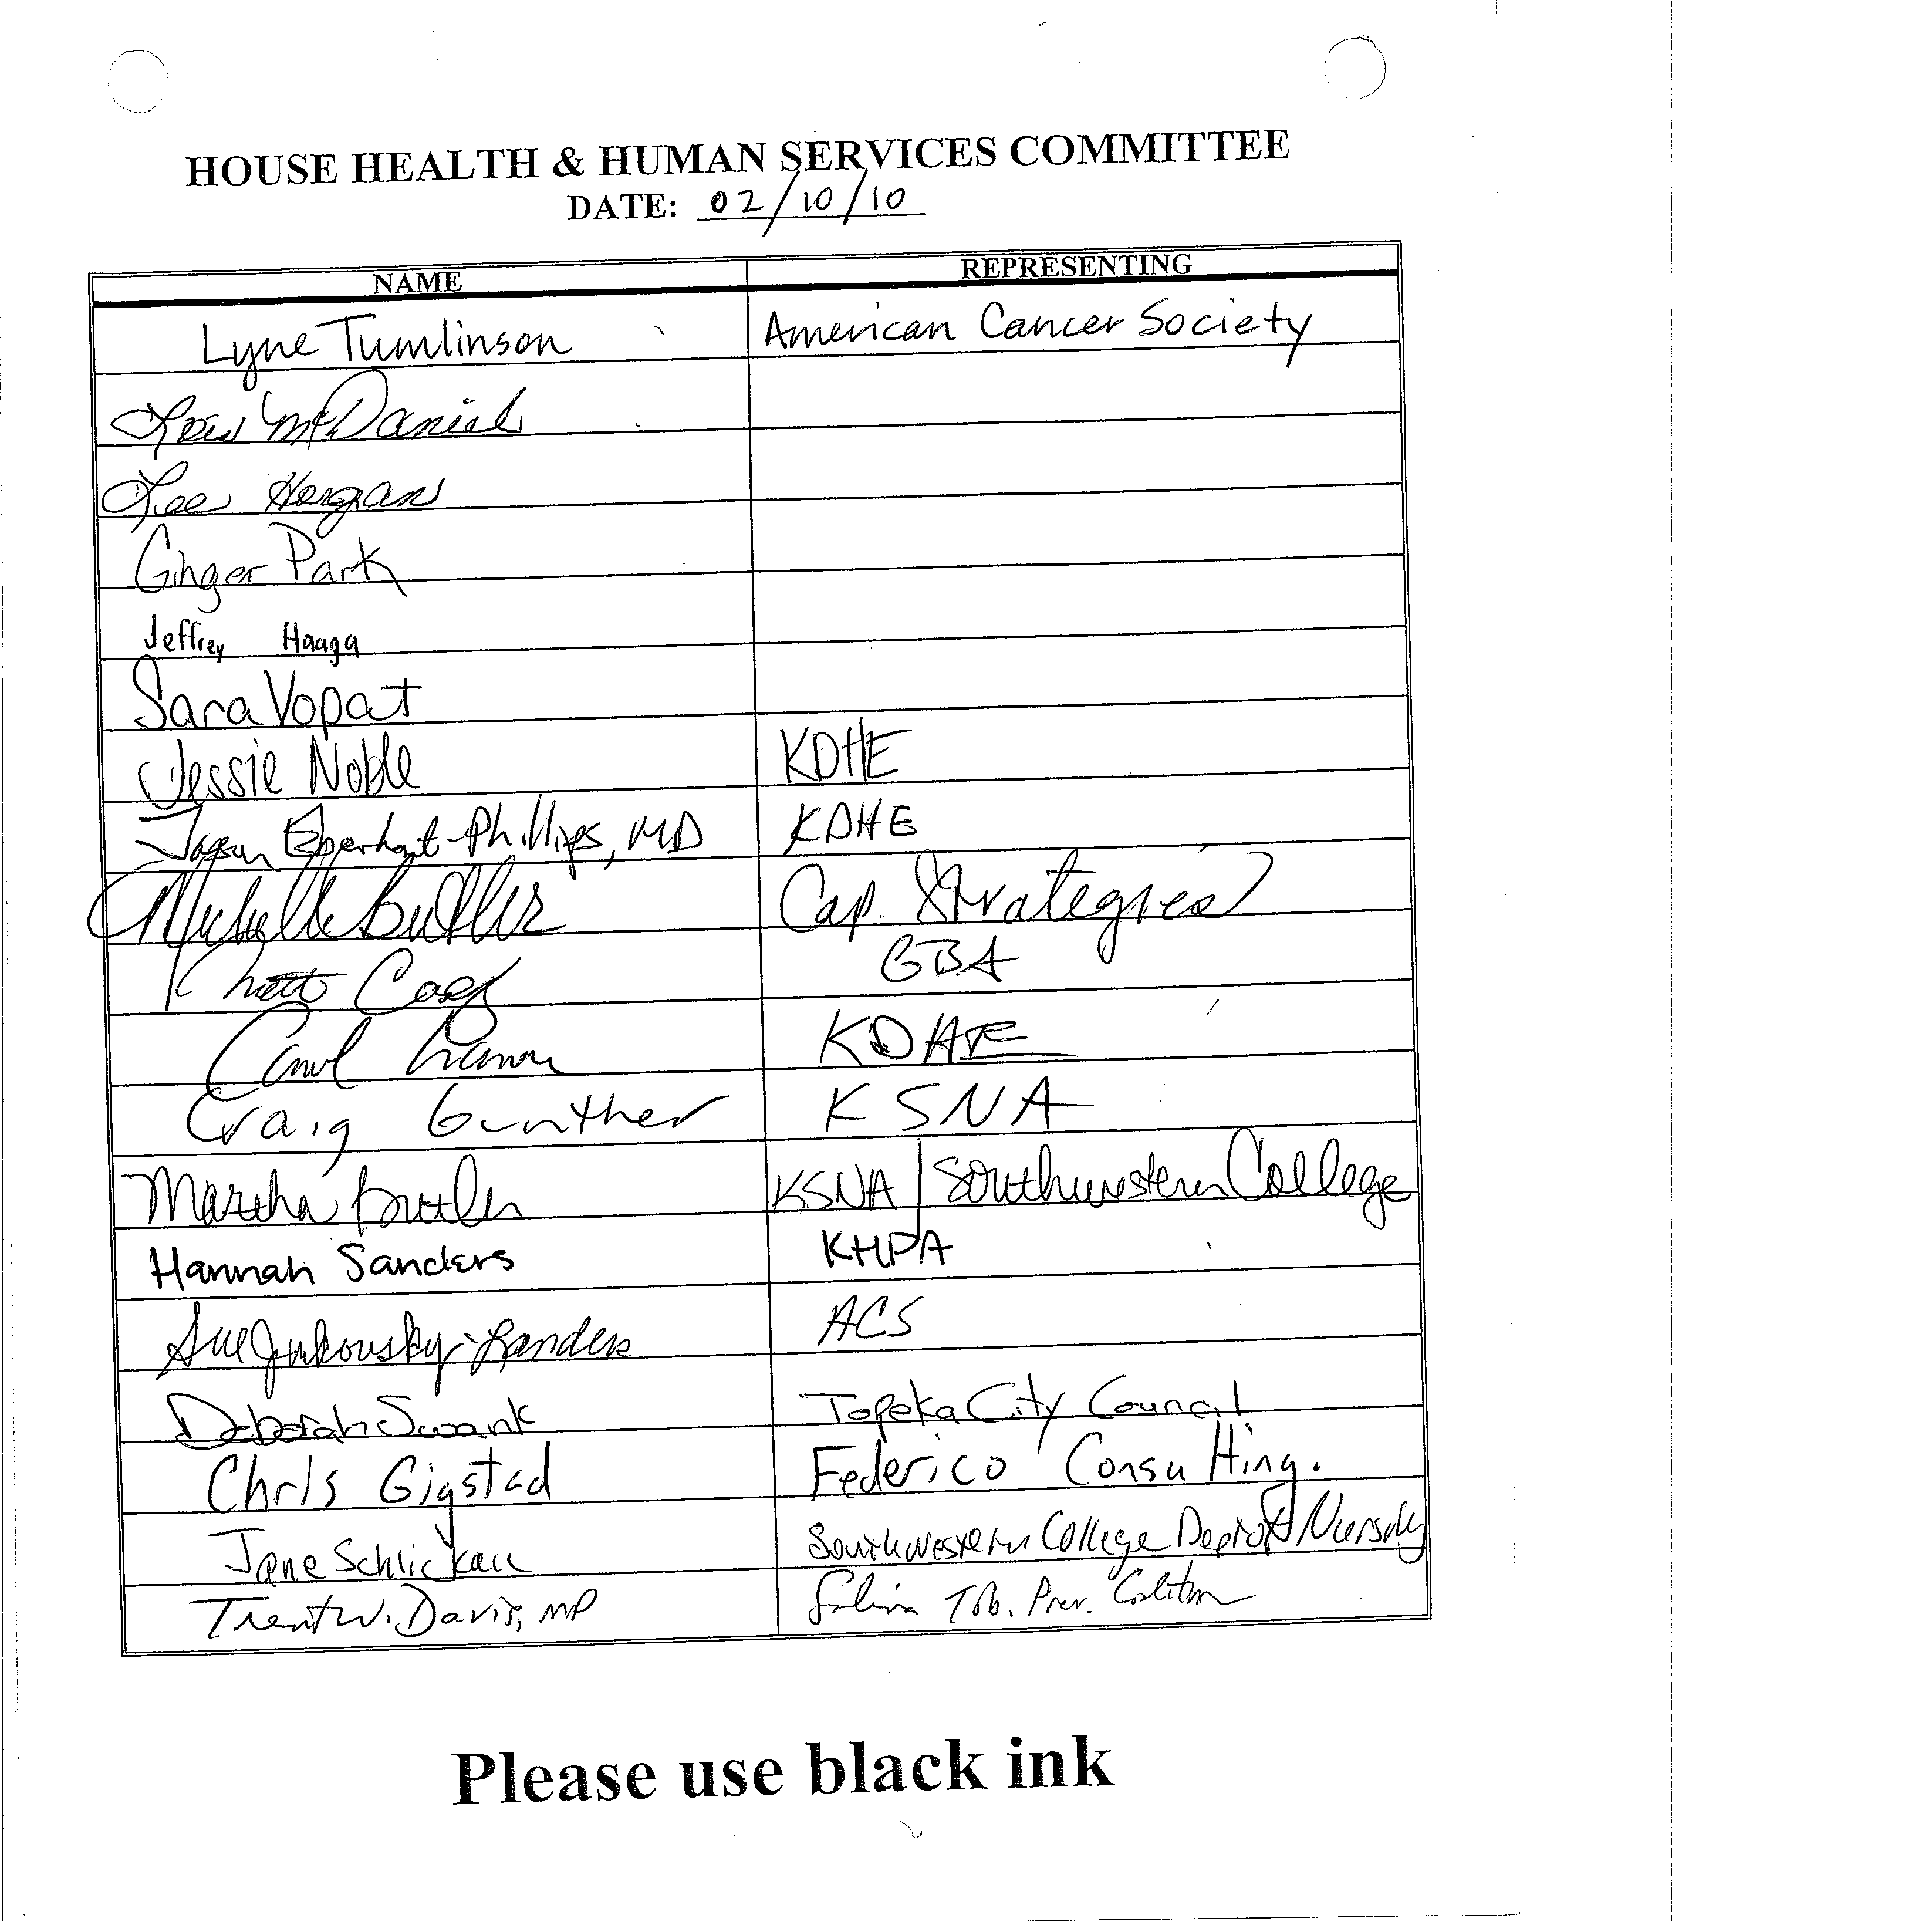 HOUSE HEALTH & HUMAN SERVICES COMMITTEE
DATE: 02/10/10
NAME REPRESENTING
Lyne Tumlinson American Cancer Society
McDaniel
Lee
Ginger Park
Jeffrey Haaga
Sara Vopat
Jessie Noble KDHE
Jason Eberhart-Phillips, MD KDHE
Michelle Butler Cap. Strategies
GBA
KDHE
Craig Gunther KSNA
Martha Butler KSNA/Southwestern College
Hannah Sanders KHPA
Sue Jukovsky-Landers ACS
Deborah Swank Topeka City Council
Chris Gigstad Federico Consulting.
Jane Schlickau Southwestern College Dept of Nursing
Trent W. Davis, MD Salina Tob. Prev. Coalition
Please use black ink